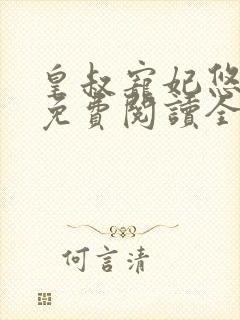 皇叔寵妃悠
免費閱讀全
何言清